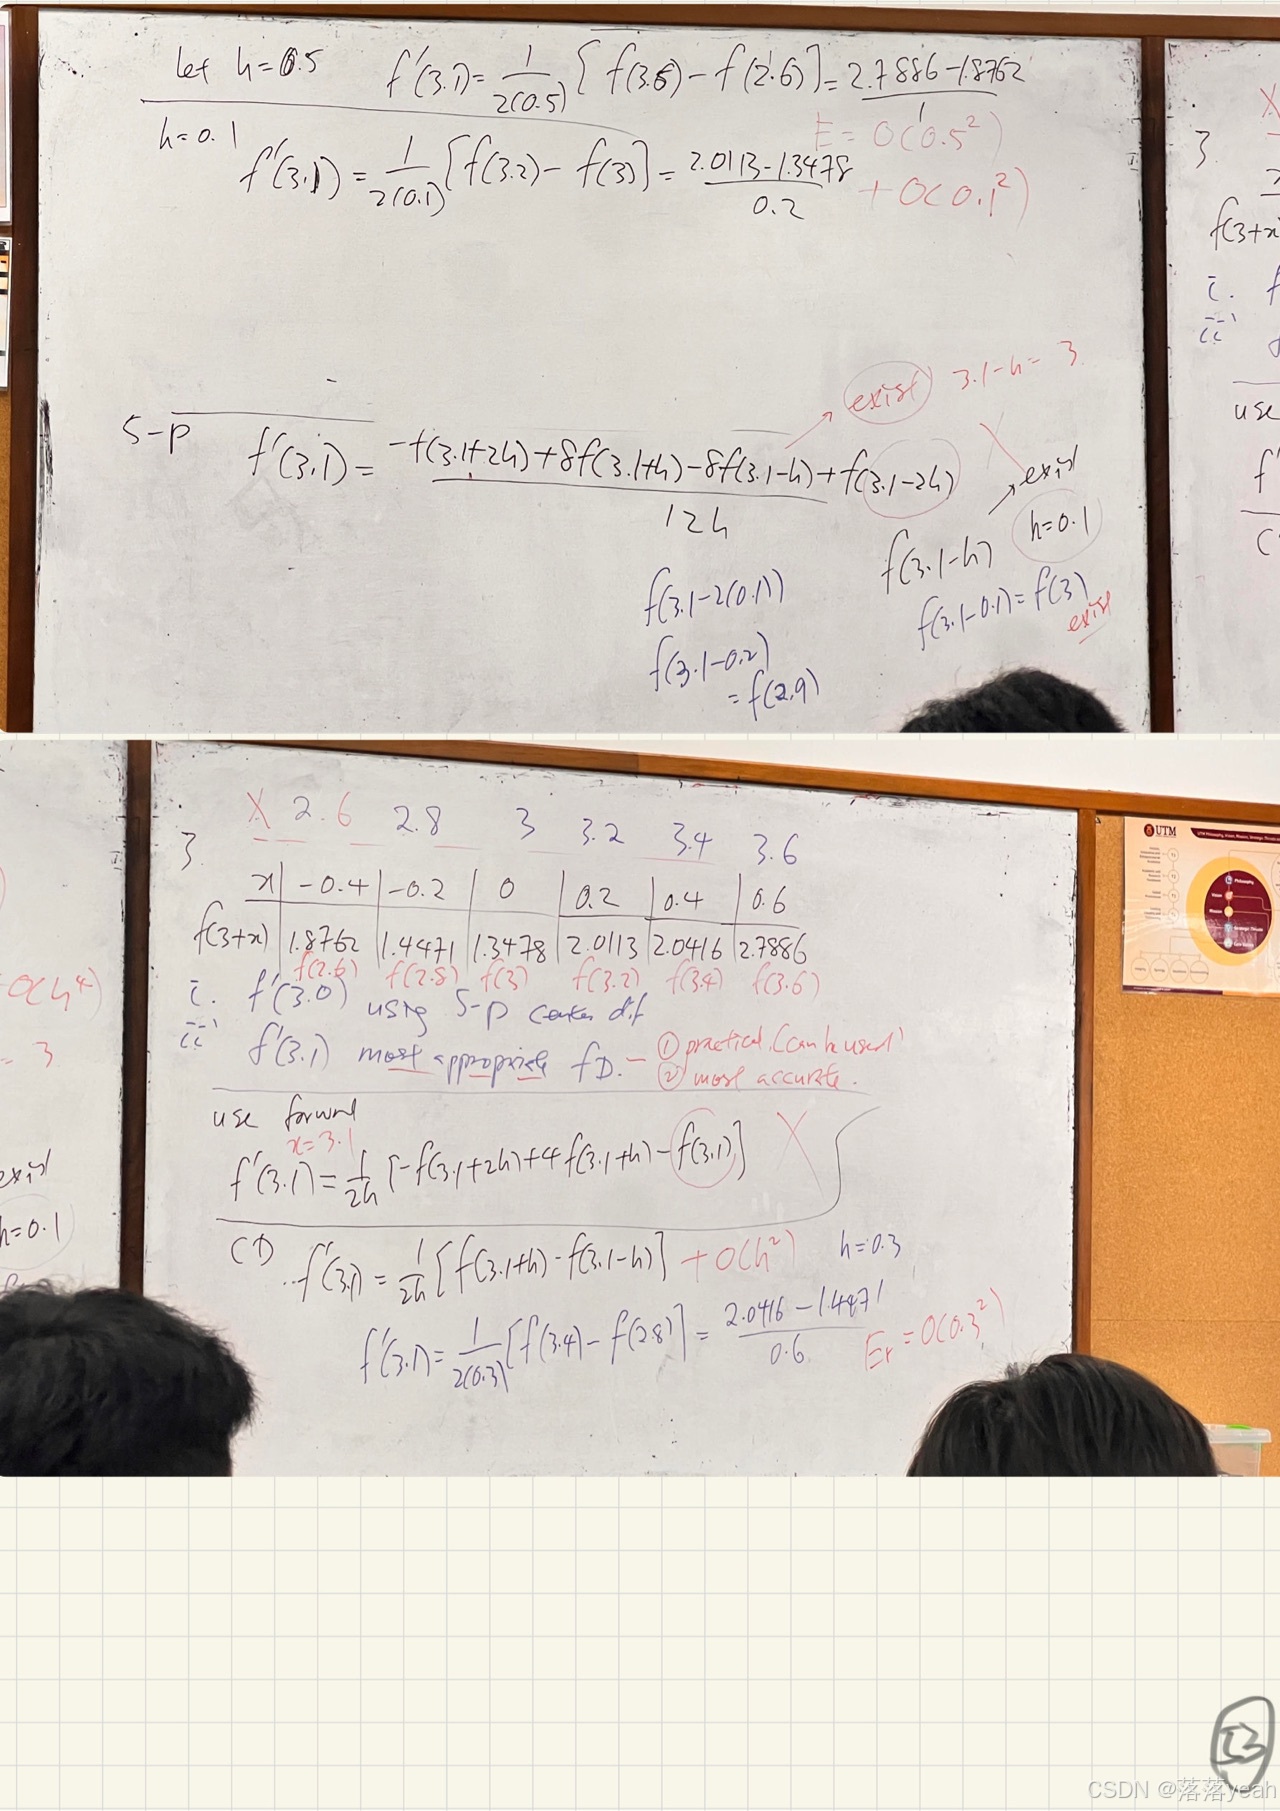 let h=0.5  f'(3.1)= 1/2(0.5) [f(3.6)-f(2.6)]= 2.7886-1.8762/1
E=O(0.5²)
h=0.1  f'(3.1)= 1/2(0.1) [f(3.2)-f(3)]= 2.0113-1.3478/0.2  +O(0.1²)
exist  3.1-h= 3
5-p  f'(3.1)= -f(3.1+2h)+8f(3.1+h)-8f(3.1-h)+f(3.1-2h)/12h  X
exist
h=0.1
f(3.1-h)
f(3.1-2(0.1))
f(3.1-0.1)=f(3)
exist
f(3.1-0.2)
=f(2.9)
X
3.
f(3+x
i. f
ii
use
f'
C
X  2.6  2.8  3  3.2  3.4  3.6
3.
x | -0.4 | -0.2 | 0 | 0.2 | 0.4 | 0.6
f(3+x) | 1.8762 | 1.4471 | 1.3478 | 2.0113 | 2.0416 | 2.7886
f(2.6)  f(2.8)  f(3)  f(3.2)  f(3.4)  f(3.6)
i. f'(3.0) using 5-p center dif
ii f'(3.1) most appropriate fD. - ① practical (can be used)
② most accurate.
use forward
x=3.1
f'(3.1)= 1/2h [-f(3.1+2h)+4f(3.1+h)-f(3.1)]  X
CD  f'(3.1)= 1/2h [f(3.1+h)-f(3.1-h)] +O(h²)  h=0.3
f'(3.1)= 1/2(0.3) [f(3.4)-f(2.8)]= 2.0416-1.4471/0.6  Er=O(0.3²)
O(h⁴)
= 3
exist
h=0.1
UTM
CSDN @落落yeah